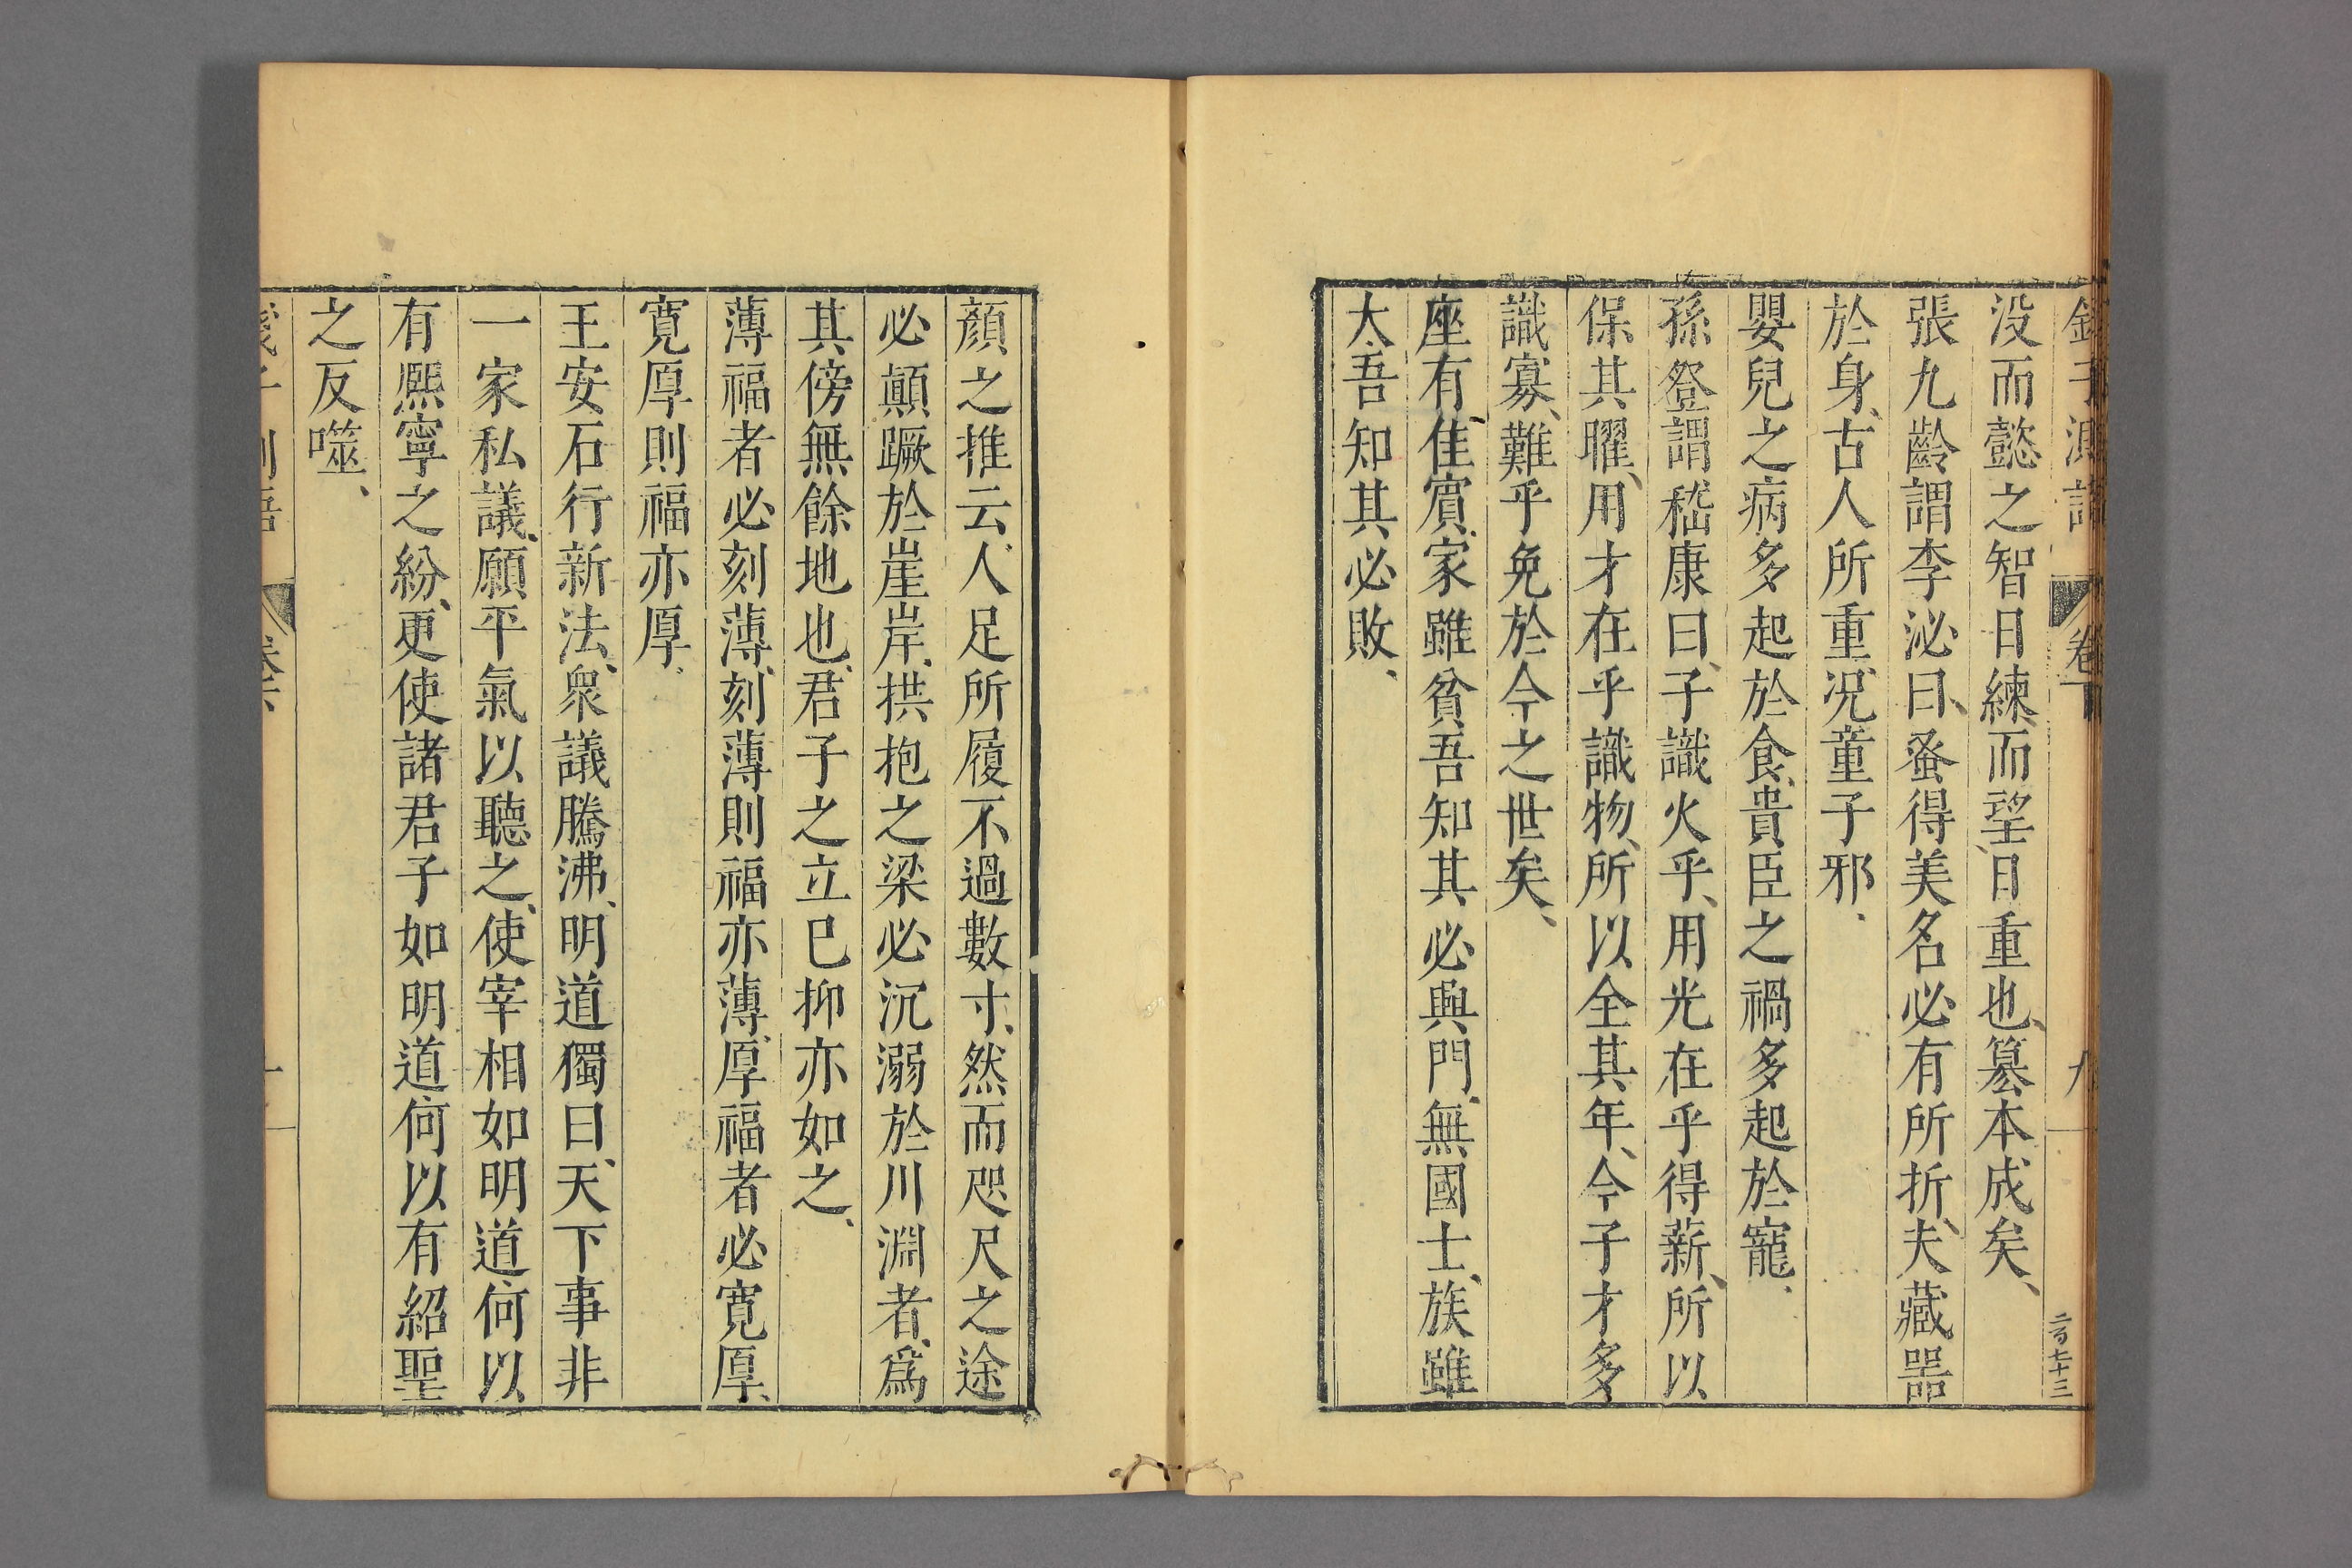 子測語 卷下 九 二百七十三
没而懿之智日練、而望日重也、篡本成矣、
張九齡謂李泌曰、蚤得美名必有所折、夫藏器
於身、古人所重、况童子邪、
嬰兒之病多起於食、貴臣之禍多起於寵、
孫登謂嵇康曰、子識火乎、用光在乎得薪、所以
保其曜、用才在乎識物、所以全其年、今子才多
識寡、難乎免於今之世矣、
座有佳賓、家雖貧吾知其必興、門無國士、族雖
大吾知其必敗、
顏之推云、人足所履不過數寸、然而咫尺之途
必顛蹶於崖岸、拱抱之梁必沉溺於川淵者、爲
其傍無餘地也、君子之立已抑亦如之、
薄福者必刻薄、刻薄則福亦薄、厚福者必寬厚、
寬厚則福亦厚、
王安石行新法、衆議騰沸、明道獨曰、天下事非
一家私議、願平氣以聽之、使宰相如明道何以
有熈寧之紛、更使諸君子如明道何以有紹聖
之反噬、